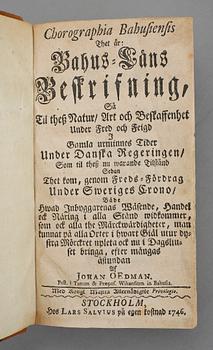 Chorographia Bahusiensis
Thet är:
Bahus-Läns
Beskrifning,
Så
Til theß Natur/ Art och Beskaffenhet
Under Fred och Feigd
I
Gamla urminnes Tider
Under Danska Regeringen/
Som til theß nu warande Tilstånd
Sedan
Thet kom, genom Freds-Fördrag
Under Sweriges Crono/
Både
Hwad Inbyggarenas Wäsende, Handel
och Näring i alla Stånd widkommer,
som ock alla the Märckwärdigheter, man
funnat på alla Orter i hwart Giäll utur dy-
stra Mörckret upleta och nu i Dagsliu-
set bringa, efter mångas
åstundan
Af
JOHAN OEDMAN,
Past. i Tanum & Præpos. Wikensium in Bahusia.
Med Kongl. Maj:ts Allernådigste Privilegio.
STOCKHOLM,
Hos LARS SALVIUS på egen kostnad 1746.